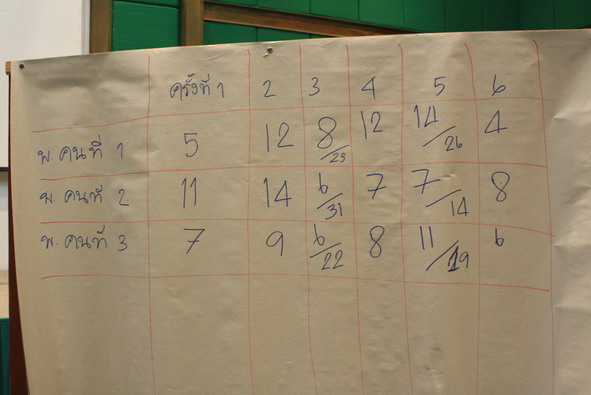 ครั้งที่ 1 2 3 4 5 6
พ.คนที่ 1 5 12 8/25 12 14/26 4
พ.คนที่ 2 11 14 6/31 7 7/14 8
พ.คนที่ 3 7 9 6/22 8 11/19 6